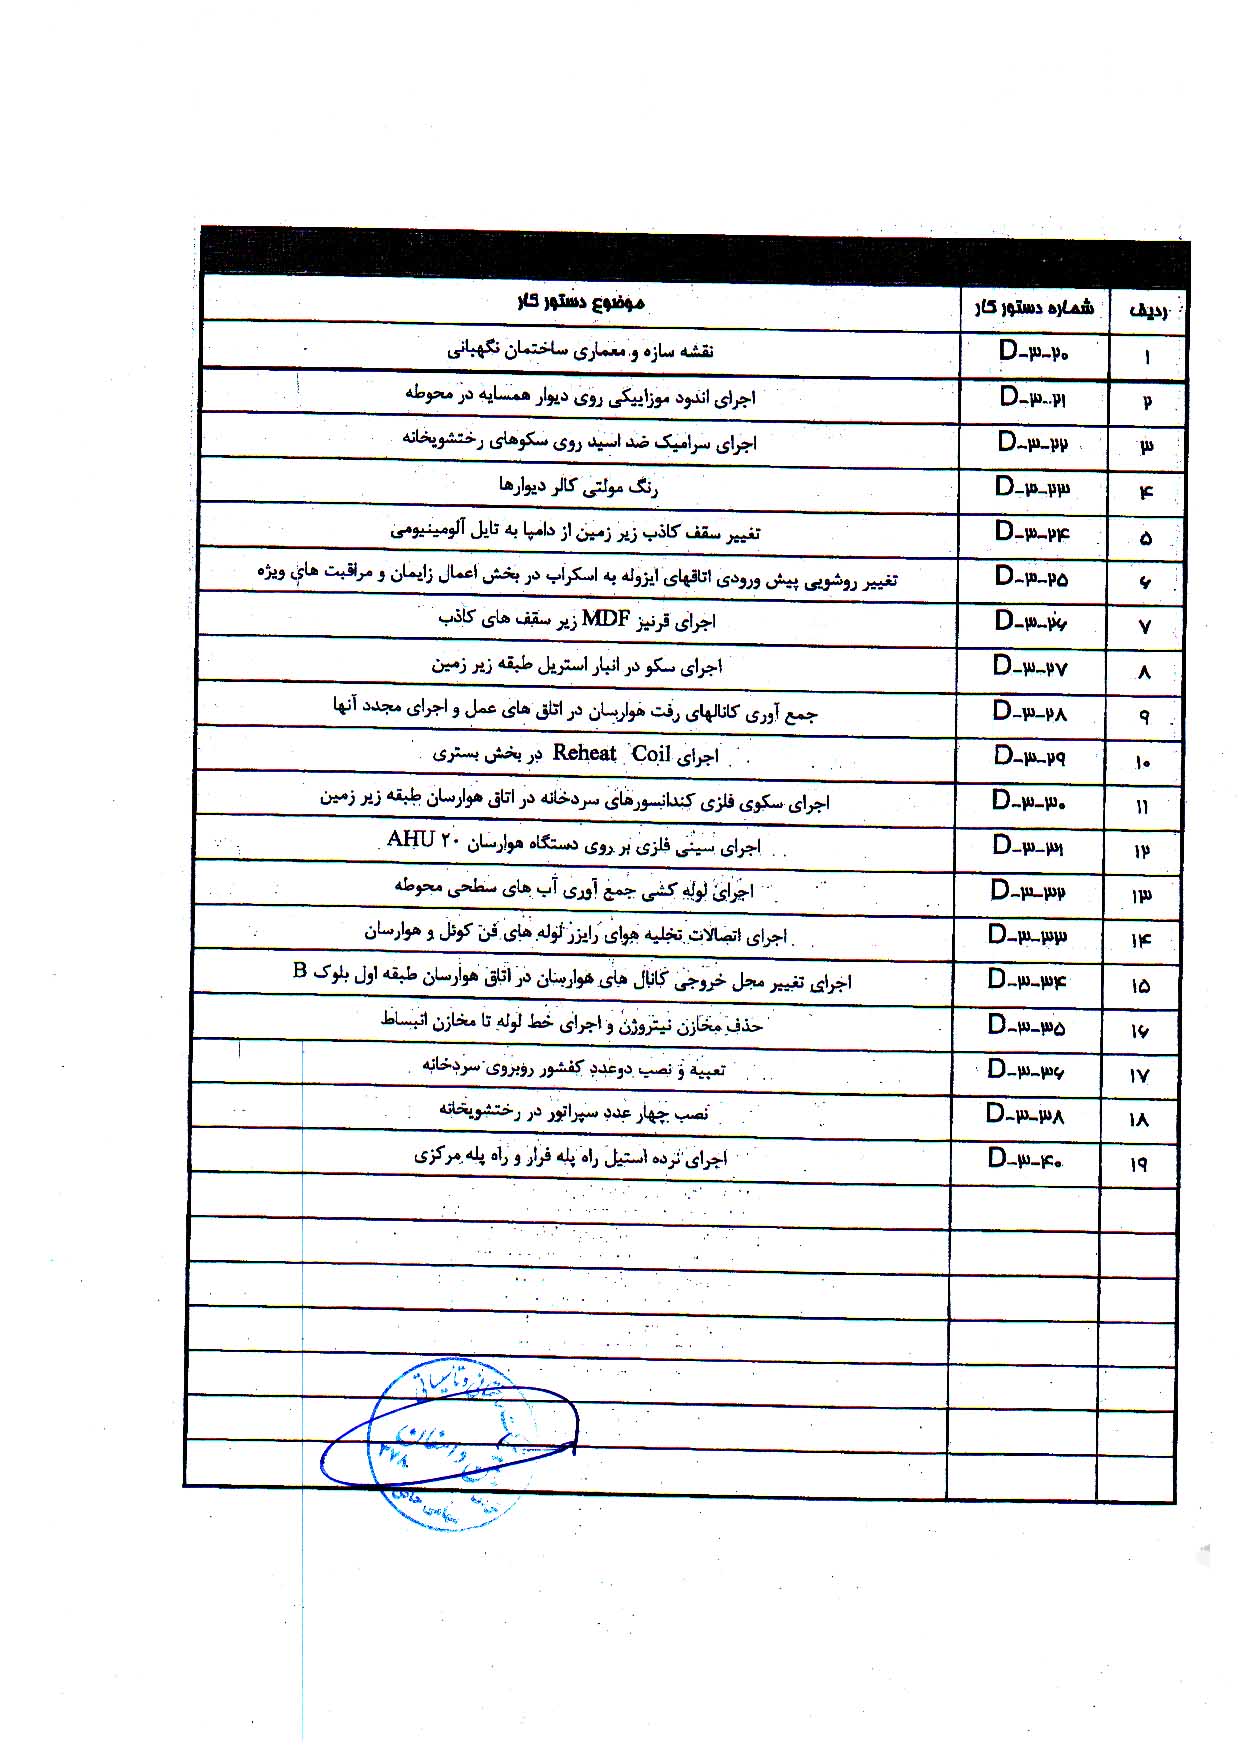 ردیف شماره دستور کار موضوع دستور کار
۱ D-۳-۲۰ نقشه سازه و معماری ساختمان نگهبانی
۲ D-۳-۲۱ اجرای اندود موزاییکی روی دیوار همسایه در محوطه
۳ D-۳-۲۲ اجرای سرامیک ضد اسید روی سکوهای رختشویخانه
۴ D-۳-۲۳ رنگ مولتی کالر دیوارها
۵ D-۳-۲۴ تغییر سقف کاذب زیر زمین از دامپا به تایل آلومینیومی
۶ D-۳-۲۵ تغییر روشویی پیش ورودی اتاقهای ایزوله به اسکراب در بخش اعمال زایمان و مراقبت های ویژه
۷ D-۳-۲۶ اجرای قرنیز MDF زیر سقف های کاذب
۸ D-۳-۲۷ اجرای سکو در انبار استریل طبقه زیر زمین
۹ D-۳-۲۸ جمع آوری کانالهای رفت هوارسان در اتاق های عمل و اجرای مجدد آنها
۱۰ D-۳-۲۹ اجرای Reheat Coil در بخش بستری
۱۱ D-۳-۳۰ اجرای سکوی فلزی کندانسورهای سردخانه در اتاق هوارسان طبقه زیر زمین
۱۲ D-۳-۳۱ اجرای سینی فلزی بر روی دستگاه هوارسان AHU ۲۰
۱۳ D-۳-۳۲ اجرای لوله کشی جمع آوری آب های سطحی محوطه
۱۴ D-۳-۳۳ اجرای اتصالات تخلیه هوای رایزر لوله های فن کوئل و هوارسان
۱۵ D-۳-۳۴ اجرای تغییر محل خروجی کانال های هوارسان در اتاق هوارسان طبقه اول بلوک B
۱۶ D-۳-۳۵ حذف مخازن نیتروژن و اجرای خط لوله تا مخازن انبساط
۱۷ D-۳-۳۶ تعبیه و نصب دوعدد کفشور روبروی سردخانه
۱۸ D-۳-۳۸ نصب چهار عدد سپراتور در رختشویخانه
۱۹ D-۳-۴۰ اجرای نرده استیل راه پله فرار و راه پله مرکزی